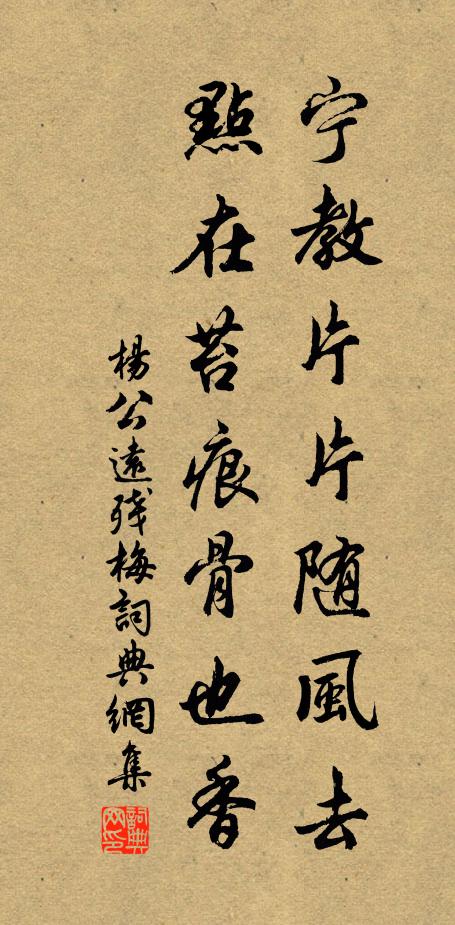 宁教片片随風去
點在苔痕骨也香
楊公遠残梅詞典網集
詞典網印